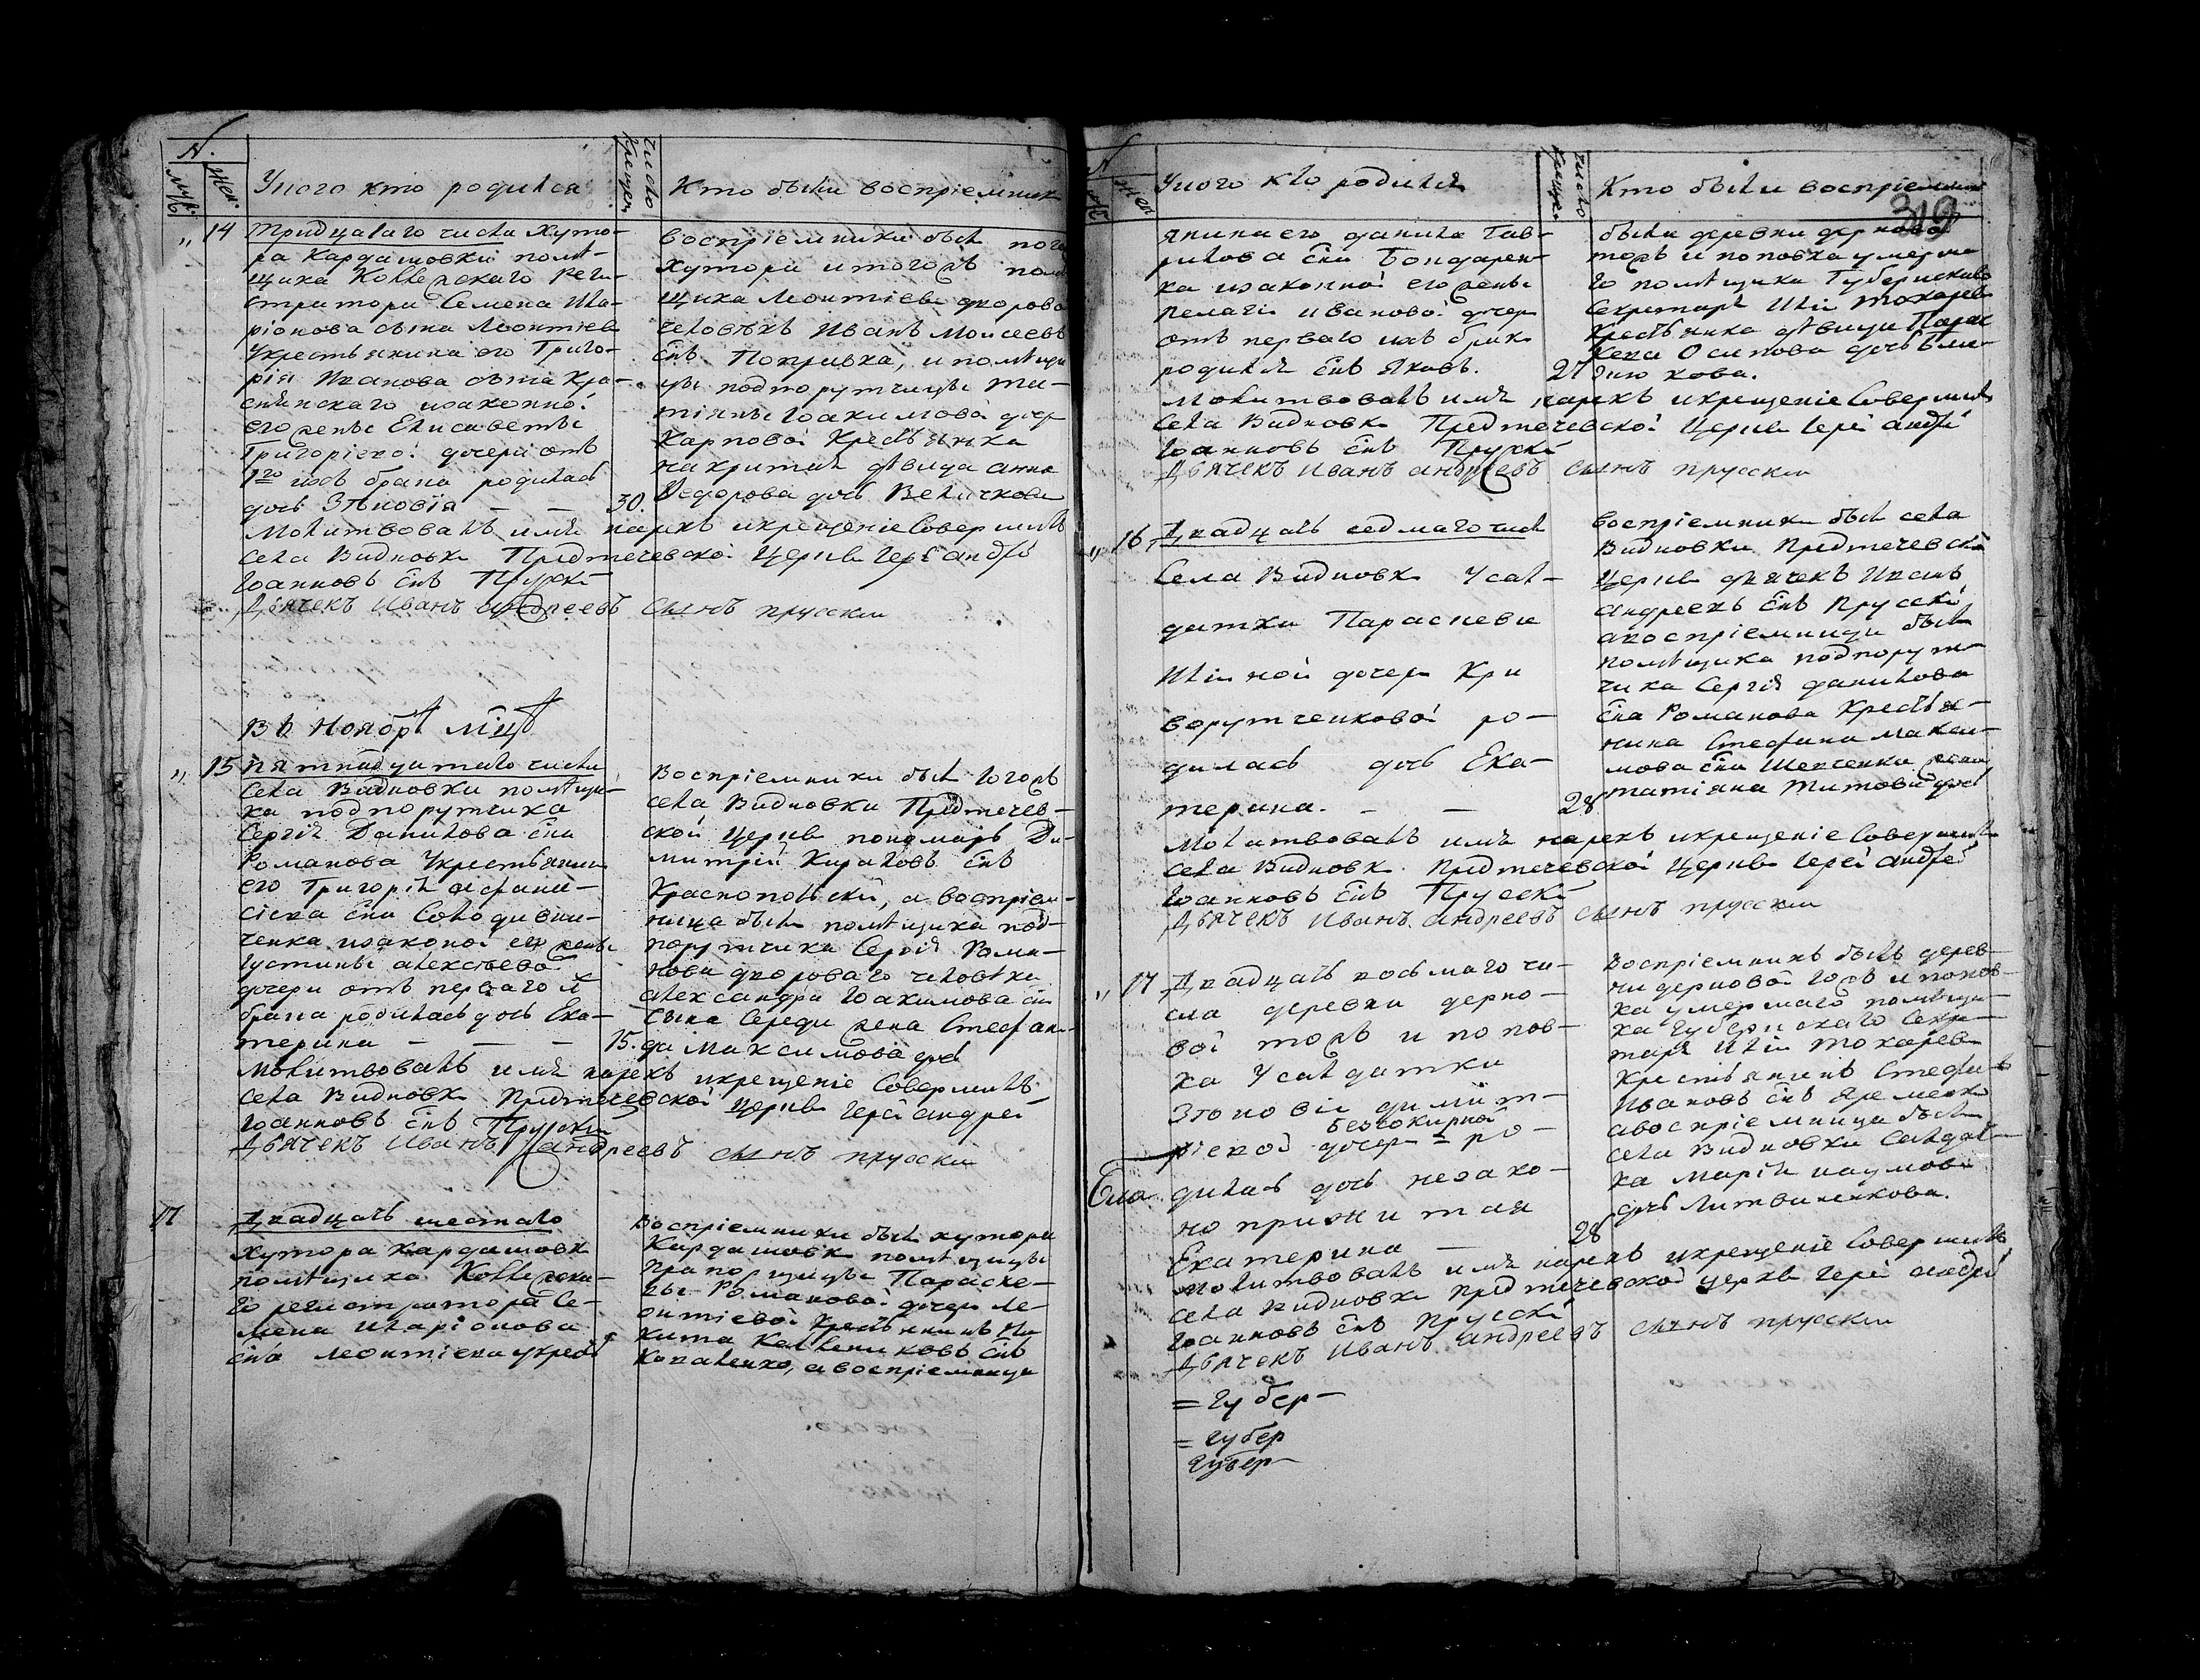 N.
муж.
жен.
У кого кто родился
число крещен.
Кто были восприемники
„ 14
Тридцатаго числа Хуто-
ра Кардашовки помѣ-
щика Коллежскаго Реги-
стратора Семена Ила-
ріонова сына Леонтіева
укрестьянина его Григо-
рія Иванова сына Кра-
снянскаго изаконной
его жены Елисаветы
Григоріевой дочери отъ
1го ихъ брака родилась
дочь Зѣновія — — 30.
воспріемники были того
Хутора итогожъ помѣ
щика Леонтіева дворово
человѣкъ Иванъ Моисеевъ
Снъ Покривка, и помѣщи
цы подпорутчицы Та-
тіяны Іоакимовой дочер
Карповой Крестьянка
дѣвица анна
Ѳедорова дочь Величкова
Молитвовалъ имя нарекъ икрещеніе Совершилъ
Села Видновки Предтечевской Церкви Іерей андрей
Іоанновъ Снъ Прускій
Дьячекъ Иванъ андреевъ сынъ прускии
Въ Ноябрѣ мцѣ
„ 15
пятнадцатаго числа
Села Видновки помѣщи-
ка подпорутчика
Сергія Данилова сна
Романова Укрестьянина
его Григорія афана-
сіева сна
ченка изаконой его жены
Іустины алексѣевой
дочери отъ перваго й
брака родилась дочь Ека-
терина — — — 15.
Воспріемники были тогожъ
села Видновки Предтечев-
ской Церкви пономарь Ди-
митрій Кириловъ Снъ
Краснопольскій, а воспріем-
ница была помѣщика под-
порутчика Сергія Рома-
нова двороваго человѣка
александра Іоакимова сна
Середи жена Стефани-
да Максимова дочь
Молитвовалъ имя нарекъ икрещеніе Совершилъ
Села Видновки Предтечевской Церкви Іерей андрей
Іоанновъ Снъ Прускии
Дьячекъ Иванъ андреевъ сынъ прусски
17
Двадцать шестаго
Хутора Кардашовк
помѣщика Коллежска-
го регистратора Се-
мена Иларіонова
сна Леонтіева укресть
Воспріемники были хутора
Кардашовк помѣщицы
прапорщицы Параске-
вы Романовой дочери Ле-
онтіевой Крестьянинъ Ни
кита Снъ
Коваленко, а воспріемница
N
муж
жен
У кого кто родился
число крещен.
Кто были воспріемники
319
янина его данила Гав-
рилова сна Бондарен-
ка изаконной его жены
Пелагіи ивановой дочери
отъ перваго ихъ брака
родился снъ Яковъ. 27
были деревни дерновой
тожъ и поповка умерша
го помѣщика Губернскаго
Секретаря Иліи Токарева
Крестьянка дѣвица Парас
кева Осипова дочь
кова.
Молитвовалъ имя нарекъ икрещеніе Совершилъ
Села Видновки Предтечевской Церкви Іерей андрей
Іоанновъ Снъ Прускій
Дьячекъ Иванъ андреевъ сынъ прусскии
„ 16
Двадцать седмаго числ
Села Видновки У сал-
датки Параскевы
Иліиной дочери Кри
ворутченковой ро-
дилась дочь Ека-
терина. — — 28
воспріемники были села
Видновки Предтечевской
Церкви дьячекъ Иванъ
андреевъ снъ Прускій
авоспріемница была
помѣщика подпорут-
чика Сергія данилова
сна Романова Крестья-
нина Стефана макси-
мова сна Шевченка жена
татіяна титова дочь
Молитвовалъ имя нарекъ икрещеніе Совершилъ
Села Видновки Предтечевской Церкви Іерей андрей
Іоанновъ Снъ Прусскій
Дьячекъ Иванъ андреевъ сынъ прусскии
„ 17
Двадцать восьмаго чи-
сла деревни дерно-
вой тожъ и попов-
ка У салдатки
Зѣновіи димит-
ріевой дочери = ро-
Безкокирной
дилась дочь незако-
но прижитая
Екатерина — 28
Воспріемникъ былъ дерев-
ни дерновой тожъ и попов-
ка умершаго помѣщи-
ка Губернскаго Секре-
таря Иліи Токарева
Крестьянинъ Стефанъ
Ивановъ снъ Яременко
авоспріемница была
села Видновки Салдат-
ка марія наумова
дочь Литвиненкова.
Молитвовалъ имя нарекъ икрещеніе Совершилъ
Села Видновки Предтечевской Церкви Іерей андрей
Іоанновъ Снъ Прусскій
Дьячекъ Иванъ андреевъ сынъ прусскии
= Губер-
= губер
Губер-